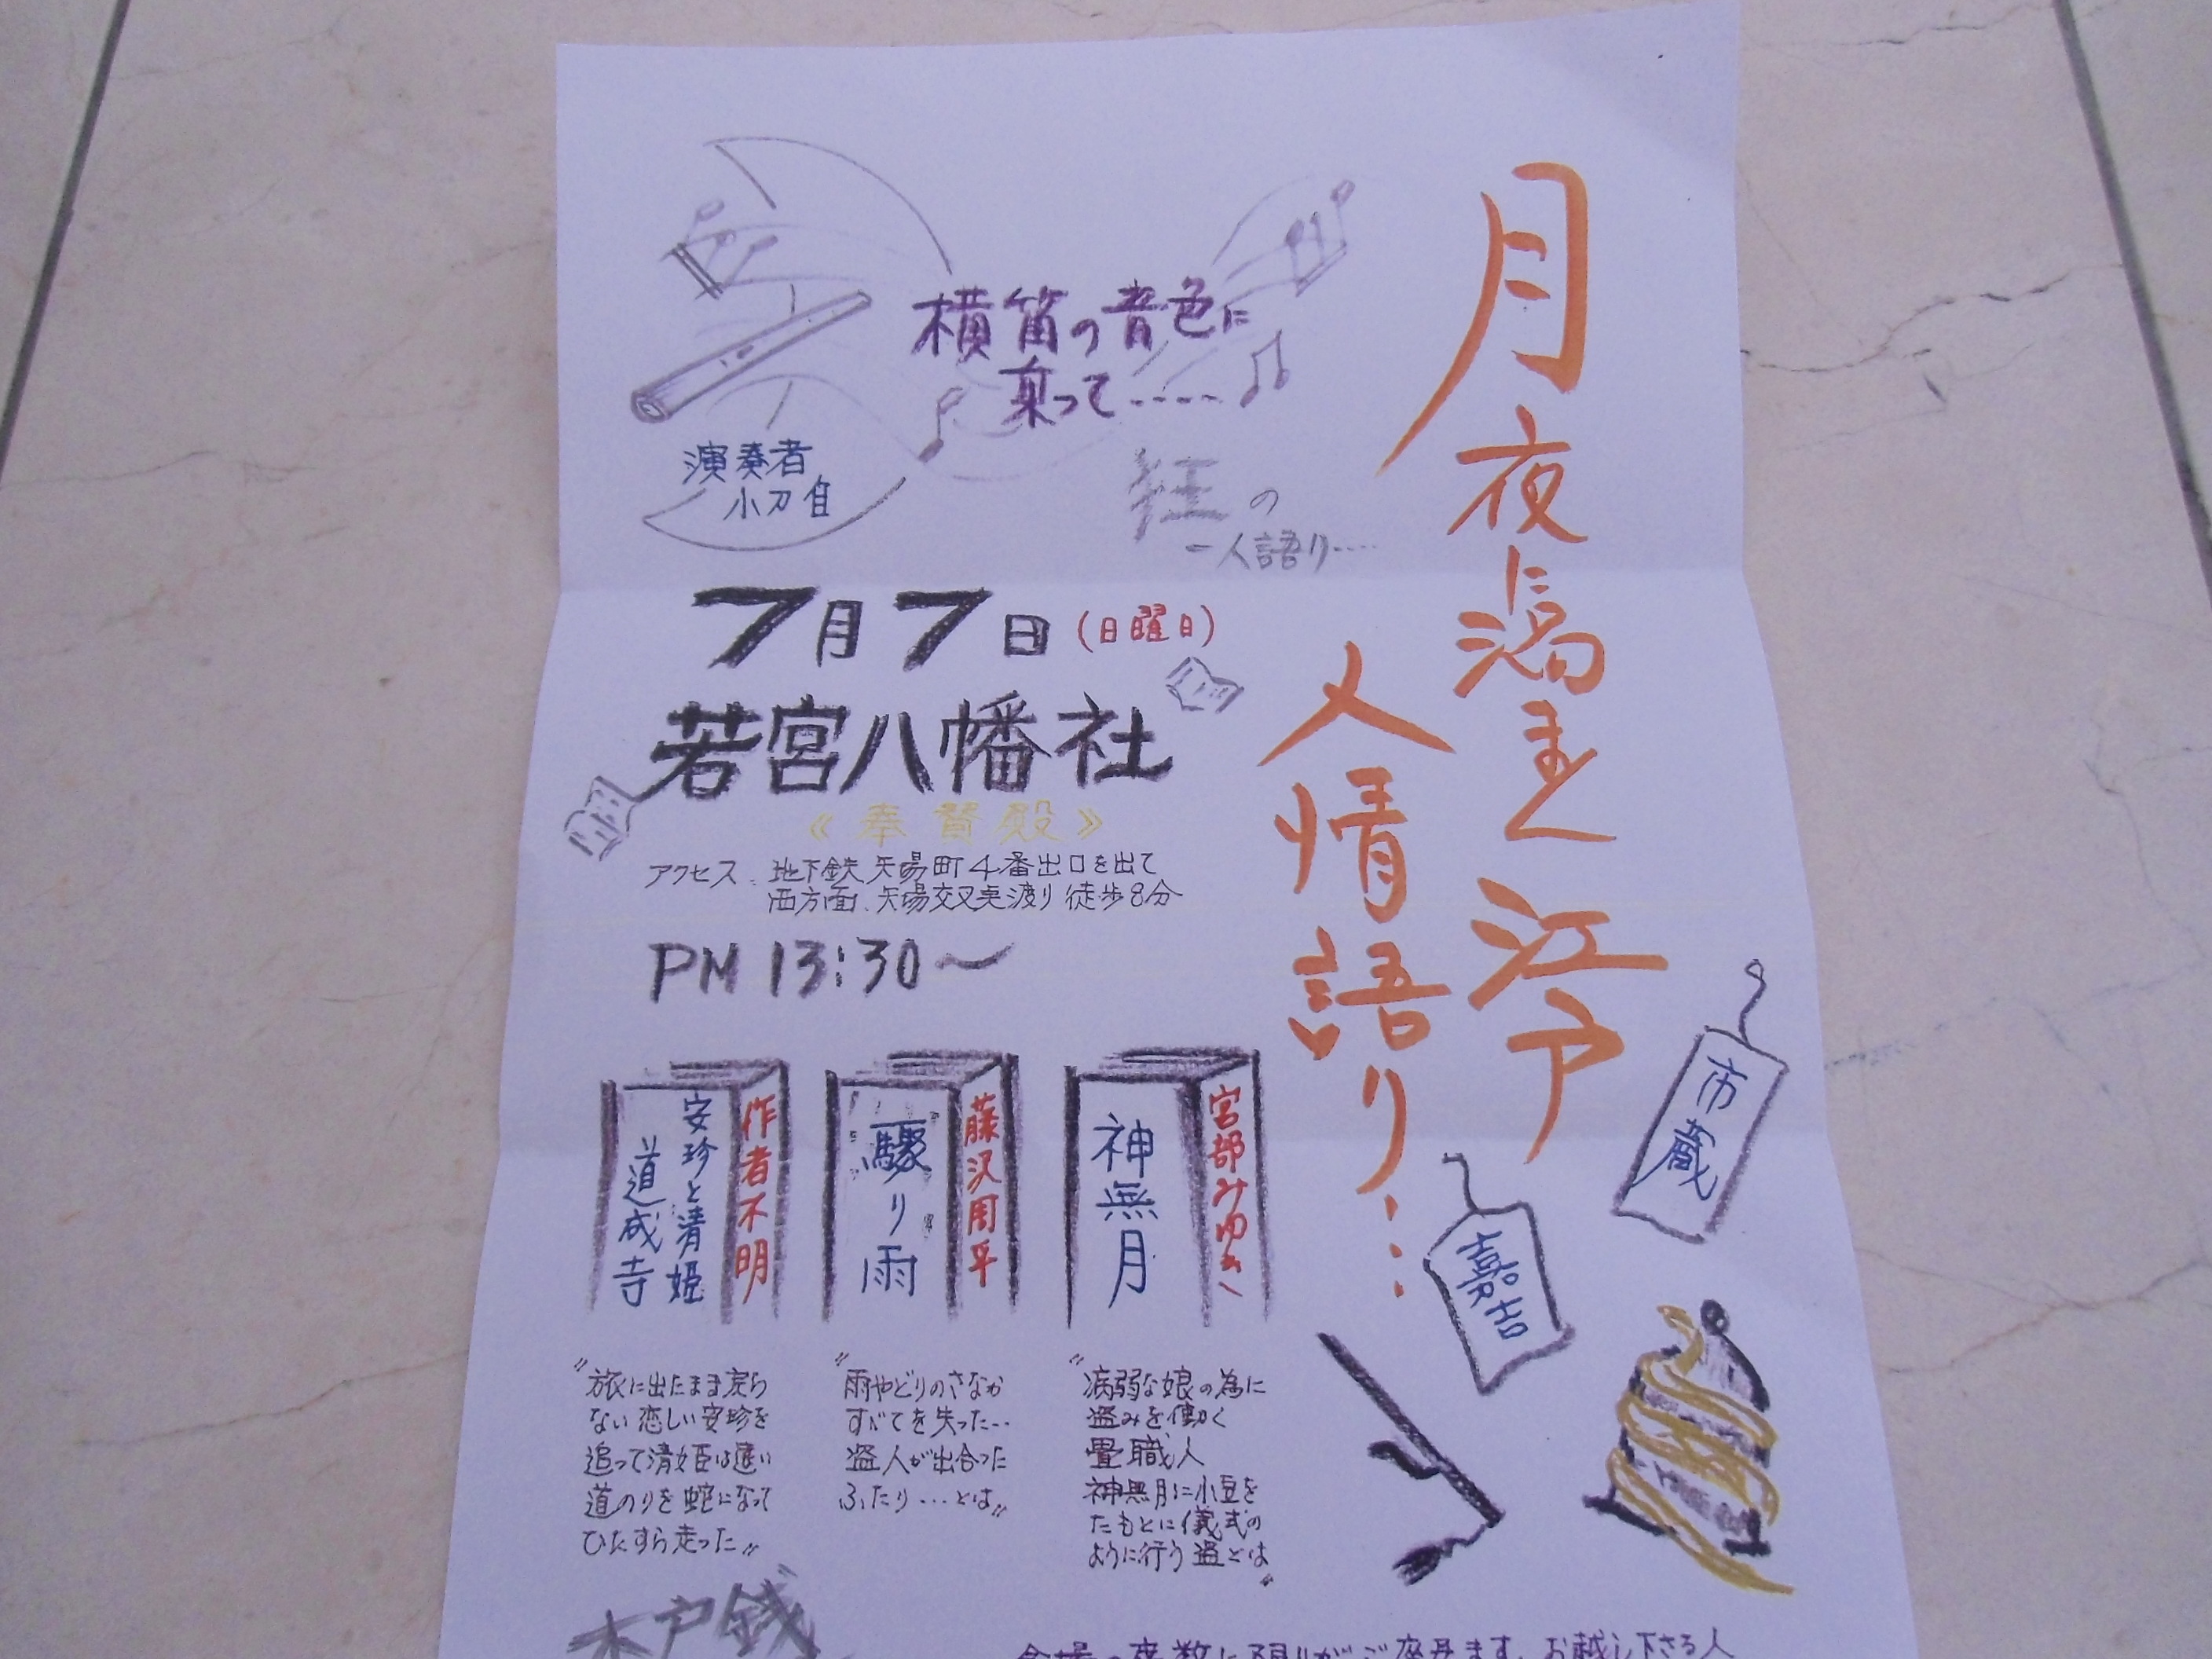 月夜に濡れて江戸
人情語り…
横笛の音色に
乗って-----
演奏者
小刀自
狂の
一人語り……
7月7日(日曜日)
若宮八幡社
《奉賛殿》
アクセス 地下鉄矢場町4番出口を出て
西方面、矢場交叉点渡り徒歩8分
PM 13:30〜
市蔵
嘉吉
宮部みゆき
神無月
藤沢周平
驟り雨
作者不明
安珍と清姫
道成寺
"病弱な娘の為に
盗みを働く
畳職人
神無月に小豆を
たもとに儀式の
ように行う盗とは"
"雨やどりのさなか
すべてを失った…
盗人が出合った
ふたり…とは"
"旅に出たまま戻ら
ない恋しい安珍を
追って清姫は遠い
道のりを蛇になって
ひたすら走った"
木戸銭
会場の座数に限りがご座居ます。お越し下さる人